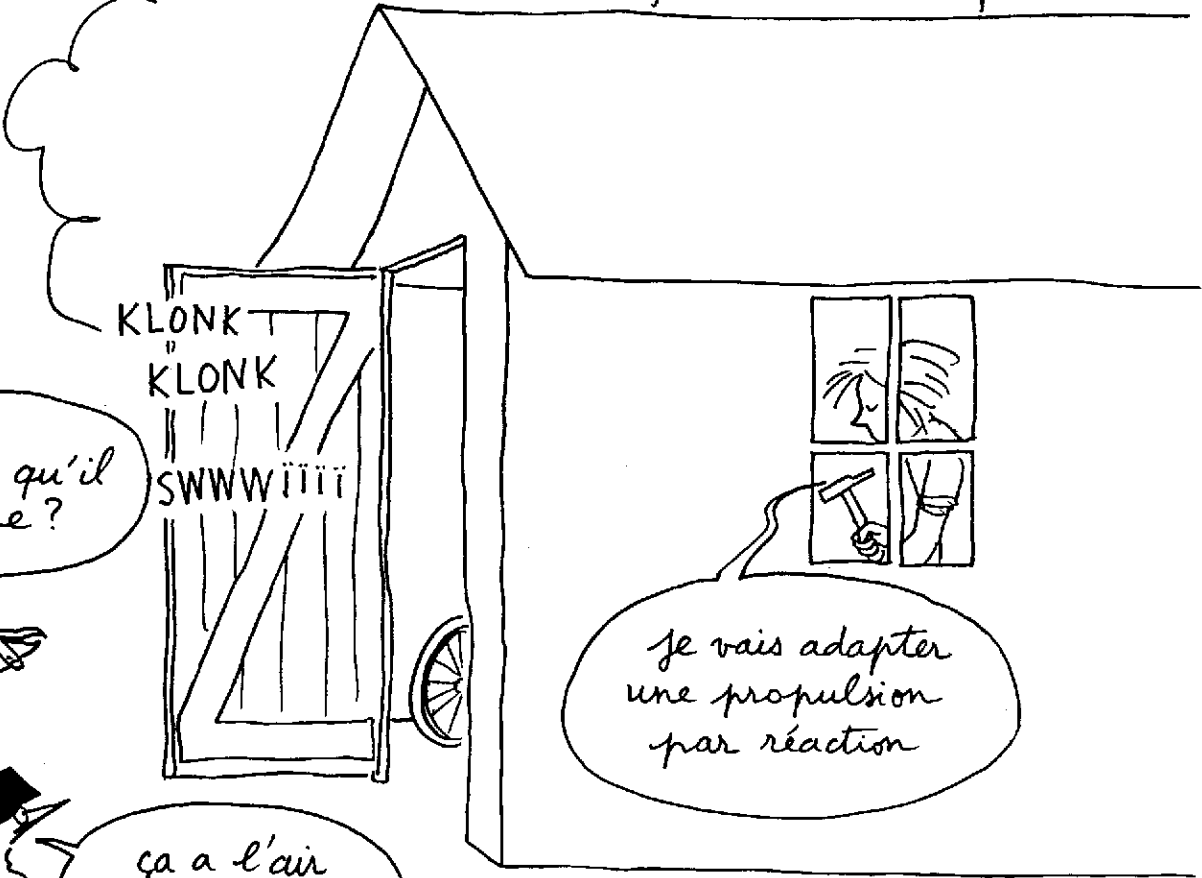 KLONK
KLONK
SWWWïïïï
qu'il
e ?
je vais adapter
une propulsion
par réaction
ça a l'air